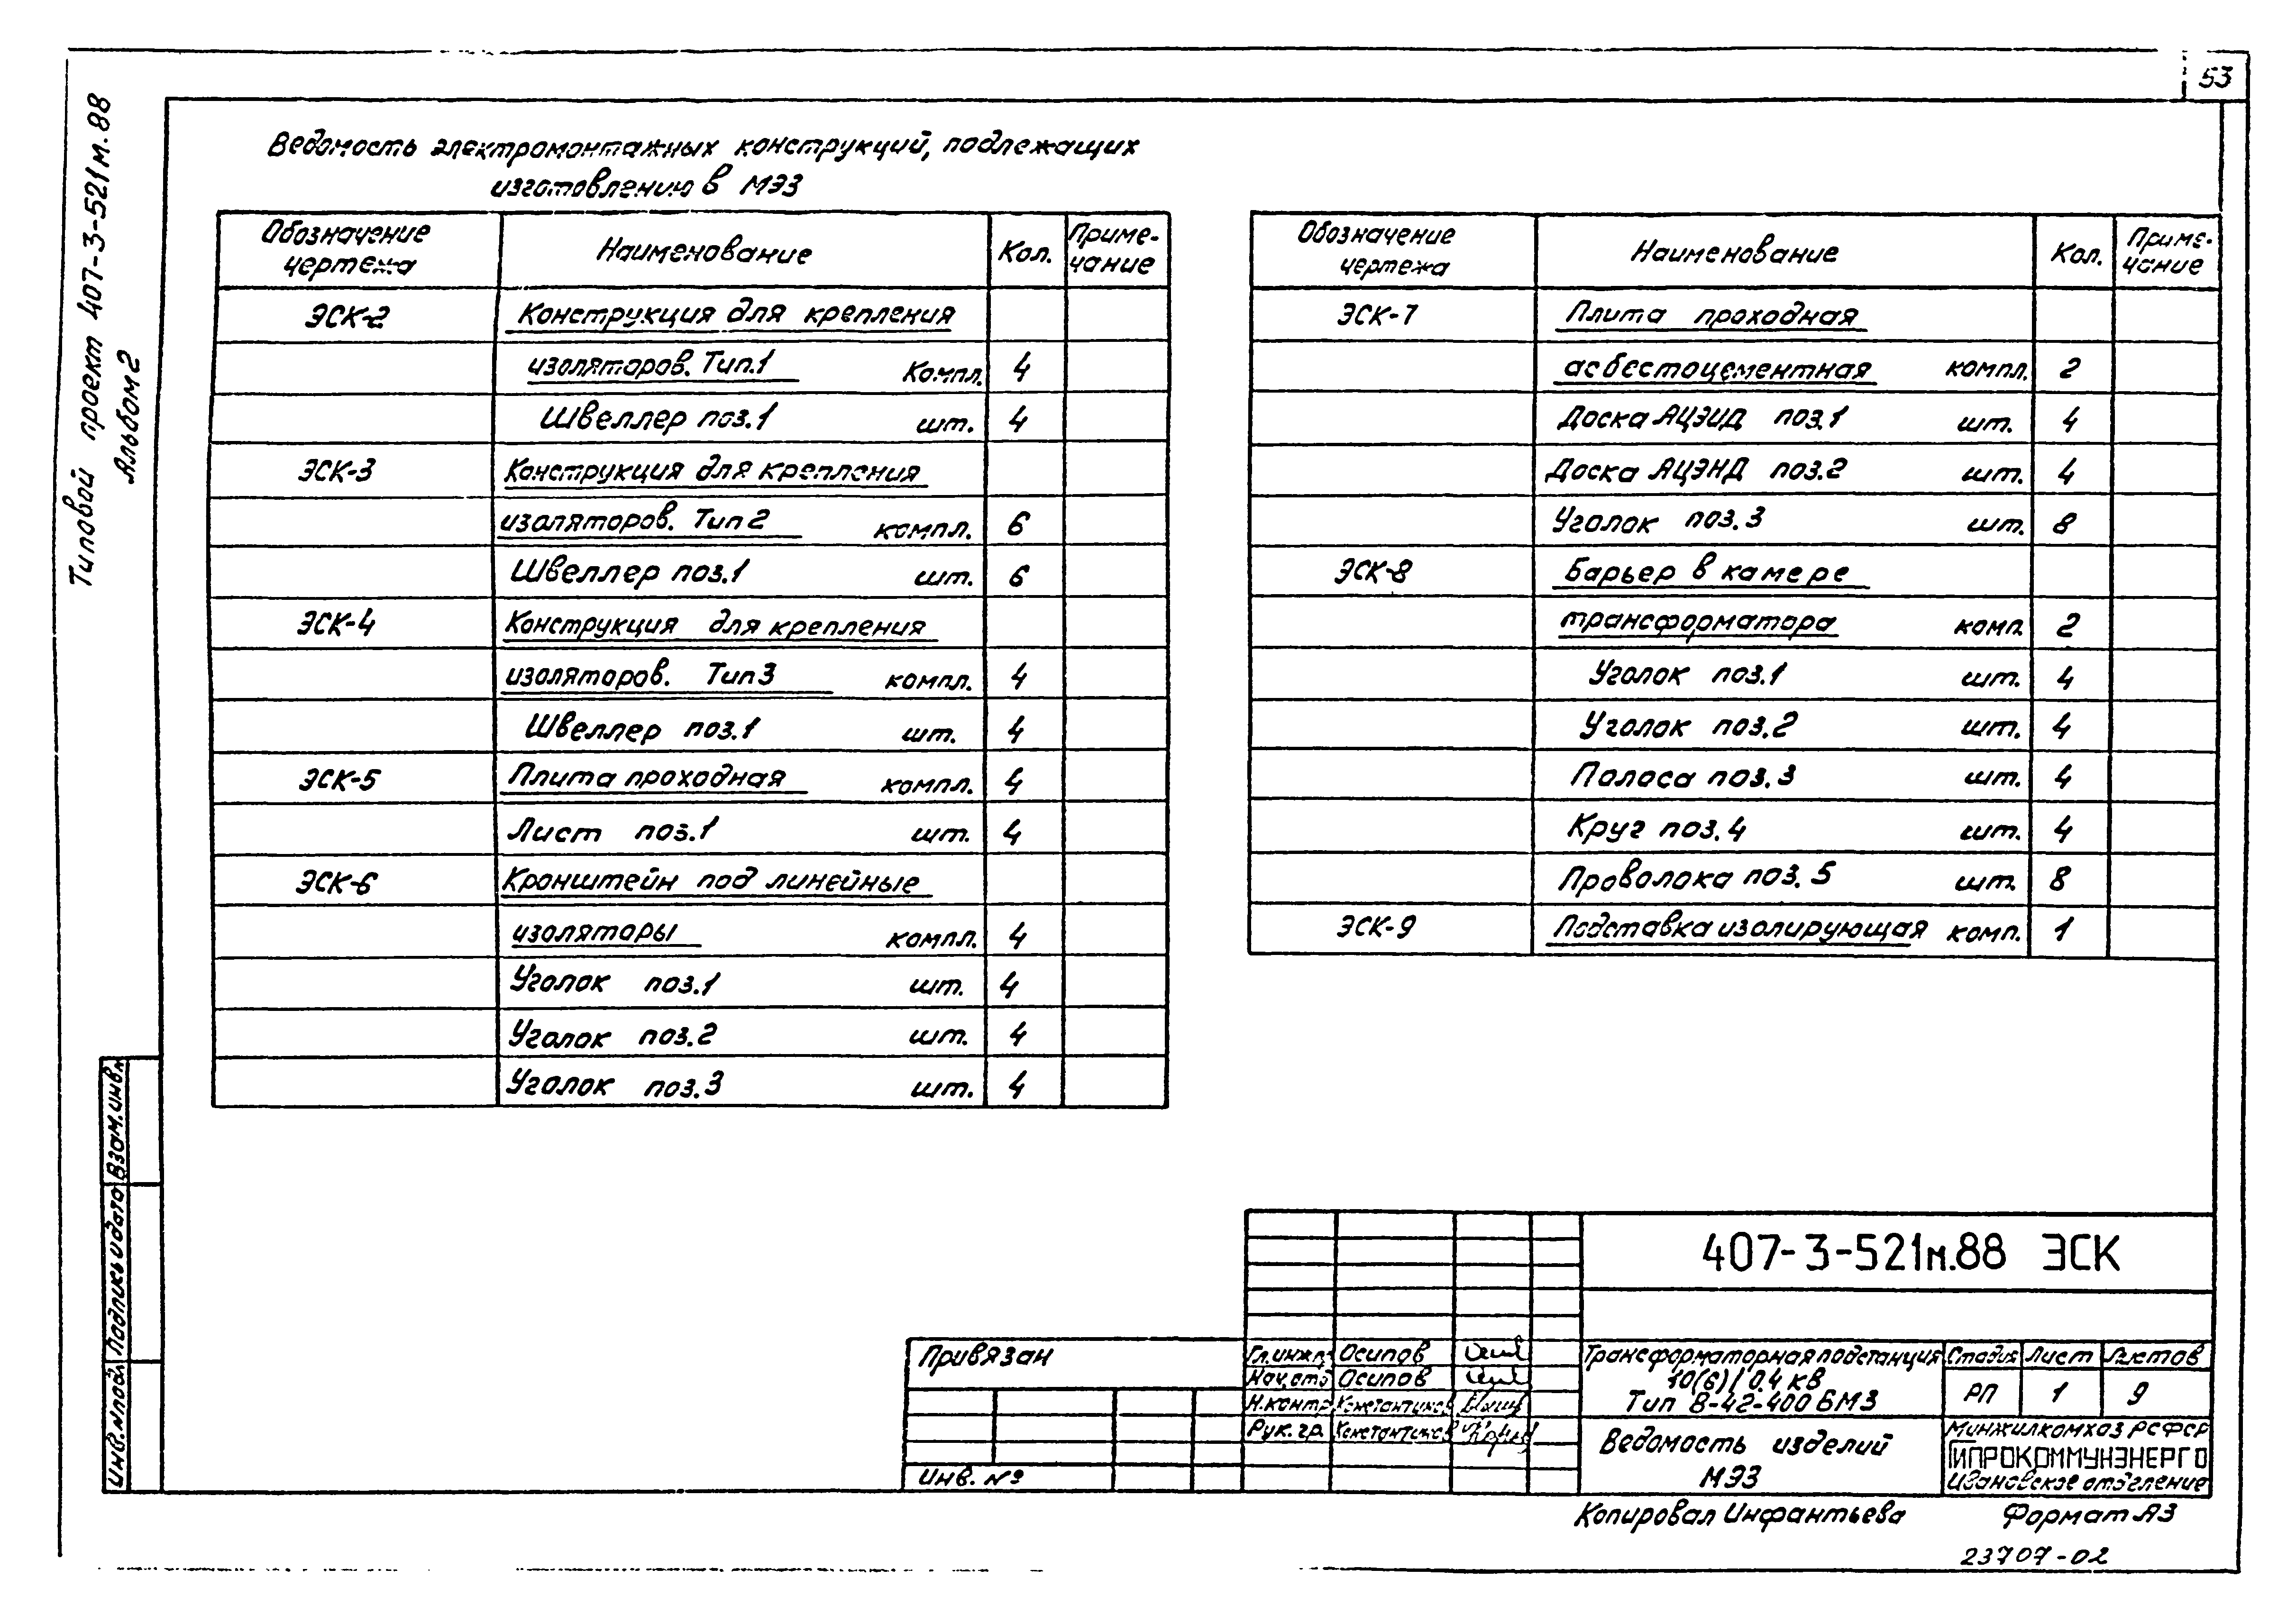 53
Типовой проект 407-3-521м.88
Альбом 2
Ведомость электромонтажных конструкций, подлежащих
изготовлению в МЭЗ
Обозначение чертежа Наименование Кол. Приме-чание
ЭСК-2 Конструкция для крепления
изоляторов. Тип.1 Компл. 4
Швеллер поз.1 шт. 4
ЭСК-3 Конструкция для крепления
изоляторов. Тип 2 компл. 6
Швеллер поз.1 шт. 6
ЭСК-4 Конструкция для крепления
изоляторов. Тип 3 компл. 4
Швеллер поз.1 шт. 4
ЭСК-5 Плита проходная компл. 4
Лист поз.1 шт. 4
ЭСК-6 Кронштейн под линейные
изоляторы компл. 4
Уголок поз.1 шт. 4
Уголок поз.2 шт. 4
Уголок поз.3 шт. 4
Обозначение чертежа Наименование Кол. Приме-чание
ЭСК-7 Плита проходная
асбестоцементная компл. 2
Доска АЦЭИД поз.1 шт. 4
Доска АЦЭНД поз.2 шт. 4
Уголок поз.3 шт. 8
ЭСК-8 Барьер в камере
трансформатора комп. 2
Уголок поз.1 шт. 4
Уголок поз.2 шт. 4
Полоса поз.3 шт. 4
Круг поз.4 шт. 4
Проволока поз.5 шт. 8
ЭСК-9 Подставка изолирующая комп. 1
Взам.инв.№
Подпись и дата
Инв.№подл.
407-3-521м.88 ЭСК
Привязан
Инв. №
Гл.инж.п. Осипов
Нач.отд Осипов
Н.контр Константинов
Рук.гр. Константинов
Трансформаторная подстанция
10(6)/0.4 кВ
Тип В-42-400 БМЗ
Стадия Лист Листов
РП 1 9
Ведомость изделий
МЭЗ
Минжилкомхоз РСФСР
ГИПРОКОММУНЭНЕРГО
Ивановское отделение
Копировал Инфантьева Формат А3
23707-02